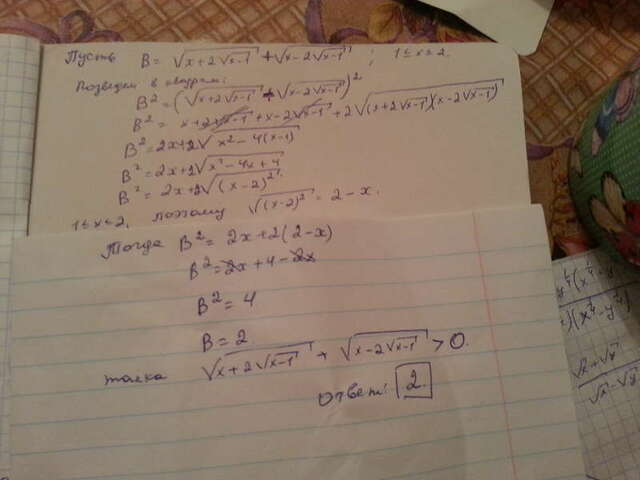 Пусть B = √(x+2√(x-1)) + √(x-2√(x-1)) ; 1≤x≤2.
Возведем в квадрат:
B² = (√(x+2√(x-1)) + √(x-2√(x-1)))²
B² = x+2√(x-1) + x-2√(x-1) + 2√((x+2√(x-1))(x-2√(x-1)))
B² = 2x+2√(x²-4(x-1))
B² = 2x+2√(x²-4x+4)
B² = 2x+2√((x-2)²)
1≤x≤2, поэтому √((x-2)²) = 2-x.
Тогда B² = 2x+2(2-x)
B² = 2x+4-2x
B² = 4
B = 2
√(x+2√(x-1)) + √(x-2√(x-1)) > 0.
Ответ: 2.
√x+√y
√x-√y